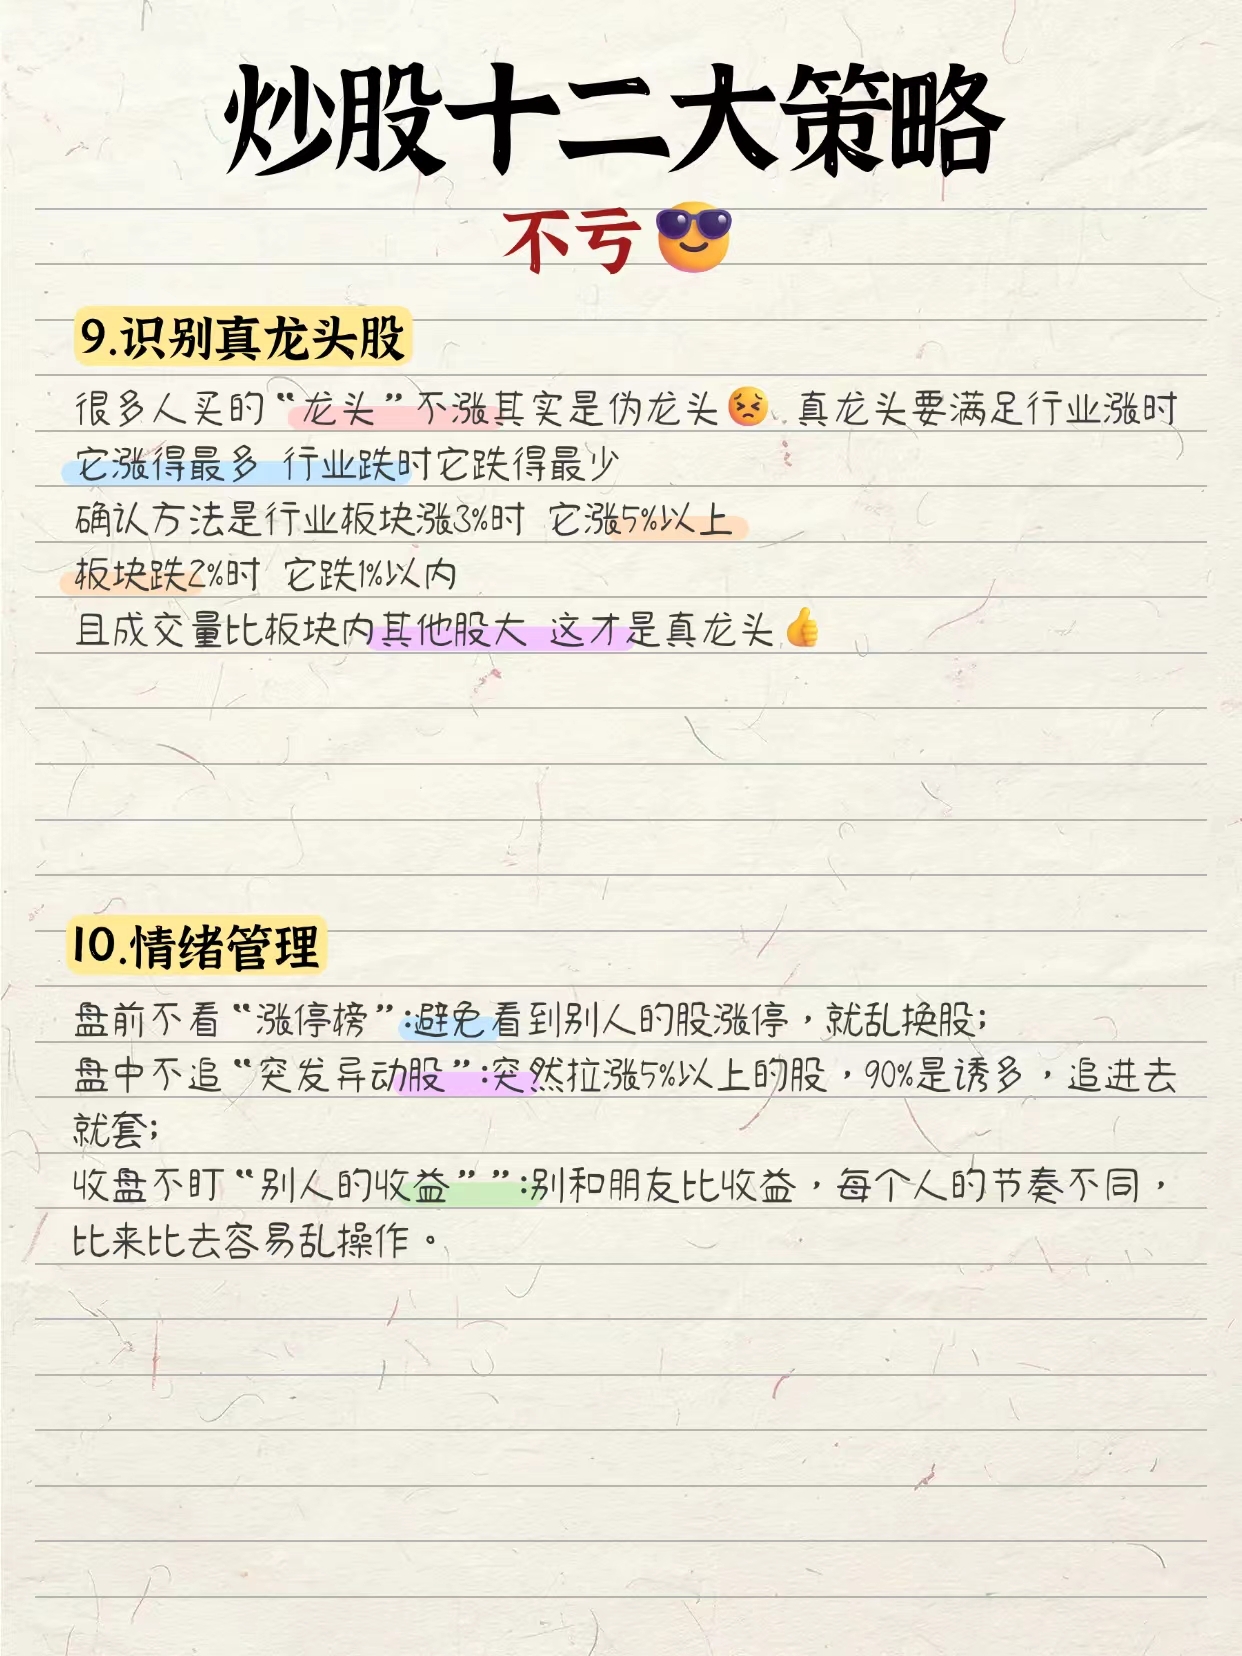 炒股十二大策略
不亏😎
9.识别真龙头股
很多人买的“龙头”不涨其实是伪龙头😣 真龙头要满足行业涨时
它涨得最多 行业跌时它跌得最少
确认方法是行业板块涨3%时 它涨5%以上
板块跌2%时 它跌1%以内
且成交量比板块内其他股大 这才是真龙头👍
10.情绪管理
盘前不看“涨停榜”:避免看到别人的股涨停，就乱换股;
盘中不追“突发异动股”:突然拉涨5%以上的股，90%是诱多，追进去
就套;
收盘不盯“别人的收益””:别和朋友比收益，每个人的节奏不同，
比来比去容易乱操作。